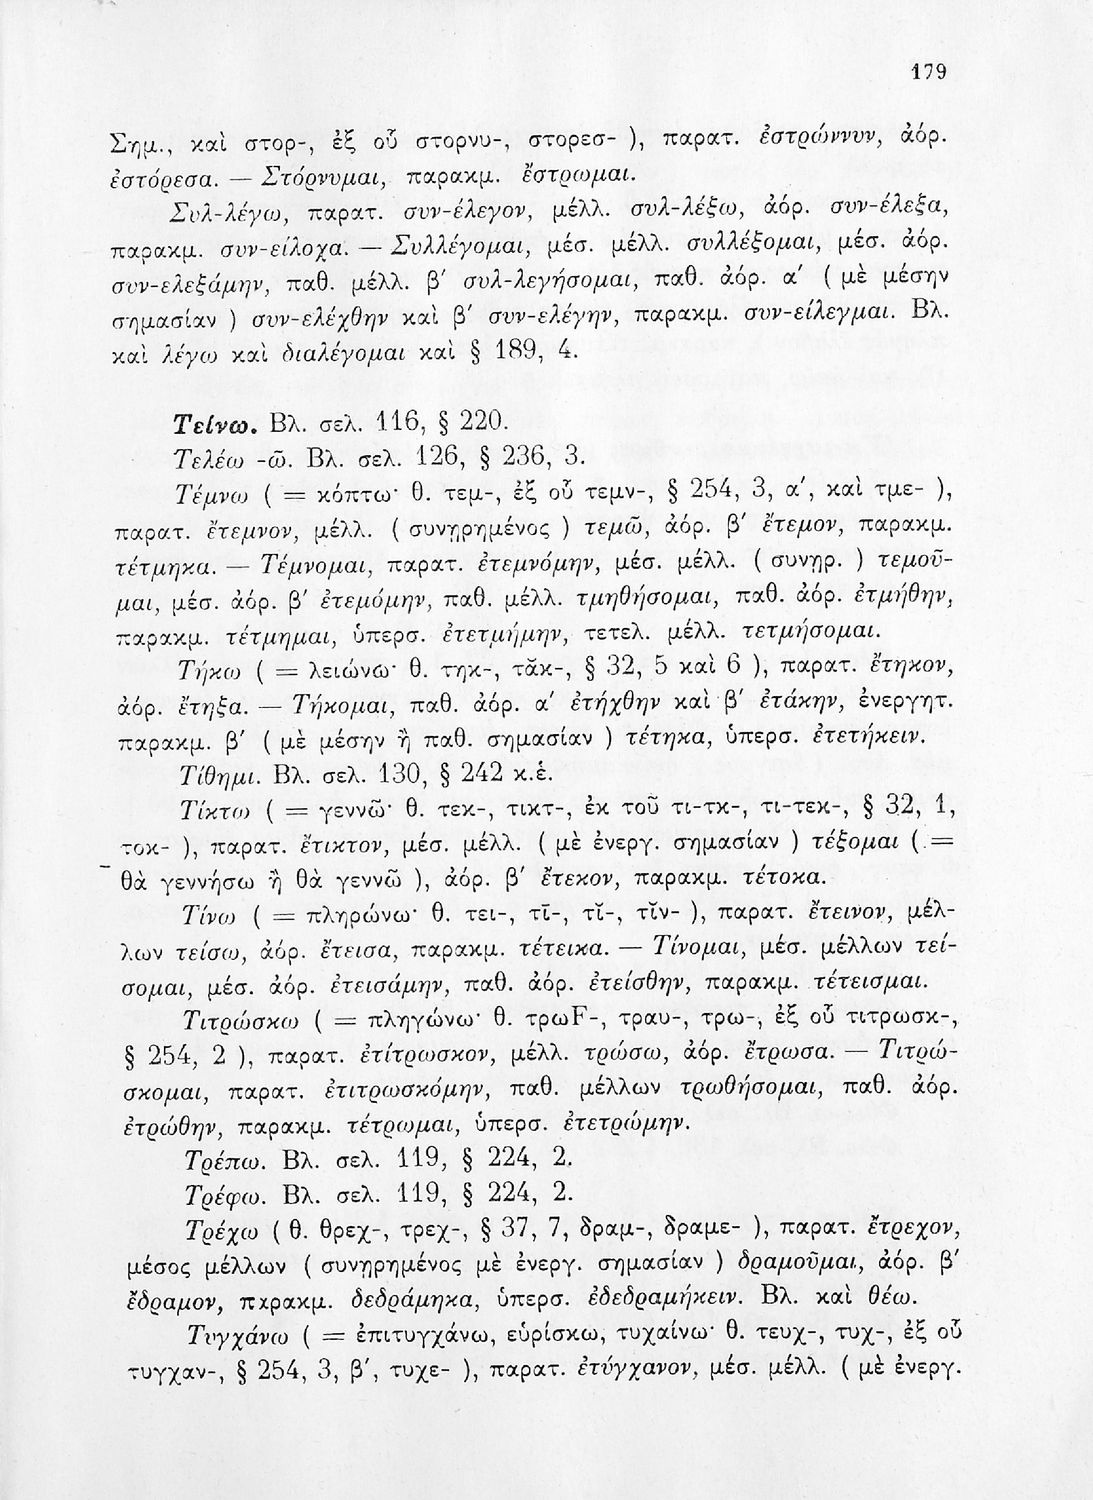 179
Σημ., καὶ στορ-, ἐξ οὗ στορνυ-, στορεσ- ), παρατ. ἐστρώννυν, ἀόρ.
ἐστόρεσα. — Στόρνυμαι, παρακμ. ἔστρωμαι.
Συλ-λέγω, παρατ. συν-έλεγον, μέλλ. συλ-λέξω, ἀόρ. συν-έλεξα,
παρακμ. συν-είλοχα. — Συλλέγομαι, μέσ. μέλλ. συλλέξομαι, μέσ. ἀόρ.
συν-ελεξάμην, παθ. μέλλ. β′ συλ-λεγήσομαι, παθ. ἀόρ. α′ ( μὲ μέσην
σημασίαν ) συν-ελέχθην καὶ β′ συν-ελέγην, παρακμ. συν-είλεγμαι. Βλ.
καὶ λέγω καὶ διαλέγομαι καὶ § 189, 4.
Τείνω. Βλ. σελ. 116, § 220.
Τελέω -ῶ. Βλ. σελ. 126, § 236, 3.
Τέμνω ( = κόπτω· θ. τεμ-, ἐξ οὗ τεμν-, § 254, 3, α′, καὶ τμε- ),
παρατ. ἔτεμνον, μέλλ. ( συνῃρημένος ) τεμῶ, ἀόρ. β′ ἔτεμον, παρακμ.
τέτμηκα. — Τέμνομαι, παρατ. ἐτεμνόμην, μέσ. μέλλ. ( συνῃρ. ) τεμοῦ-
μαι, μέσ. ἀόρ. β′ ἐτεμόμην, παθ. μέλλ. τμηθήσομαι, παθ. ἀόρ. ἐτμήθην,
παρακμ. τέτμημαι, ὑπερσ. ἐτετμήμην, τετελ. μέλλ. τετμήσομαι.
Τήκω ( = λειώνω· θ. τηκ-, τᾰκ-, § 32, 5 καὶ 6 ), παρατ. ἔτηκον,
ἀόρ. ἔτηξα. — Τήκομαι, παθ. ἀόρ. α′ ἐτήχθην καὶ β′ ἐτάκην, ἐνεργητ.
παρακμ. β′ ( μὲ μέσην ἢ παθ. σημασίαν ) τέτηκα, ὑπερσ. ἐτετήκειν.
Τίθημι. Βλ. σελ. 130, § 242 κ.ἑ.
Τίκτω ( = γεννῶ· θ. τεκ-, τικτ-, ἐκ τοῦ τι-τκ-, τι-τεκ-, § 32, 1,
τοκ- ), παρατ. ἔτικτον, μέσ. μέλλ. ( μὲ ἐνεργ. σημασίαν ) τέξομαι ( =
θὰ γεννήσω ἢ θὰ γεννῶ ), ἀόρ. β′ ἔτεκον, παρακμ. τέτοκα.
Τίνω ( = πληρώνω· θ. τει-, τῑ-, τῐ-, τῑν- ), παρατ. ἔτεινον, μέλ-
λων τείσω, ἀόρ. ἔτεισα, παρακμ. τέτεικα. — Τίνομαι, μέσ. μέλλων τεί-
σομαι, μέσ. ἀόρ. ἐτεισάμην, παθ. ἀόρ. ἐτείσθην, παρακμ. τέτεισμαι.
Τιτρώσκω ( = πληγώνω· θ. τρωF-, τραυ-, τρω-, ἐξ οὗ τιτρωσκ-,
§ 254, 2 ), παρατ. ἐτίτρωσκον, μέλλ. τρώσω, ἀόρ. ἔτρωσα. — Τιτρώ-
σκομαι, παρατ. ἐτιτρωσκόμην, παθ. μέλλων τρωθήσομαι, παθ. ἀόρ.
ἐτρώθην, παρακμ. τέτρωμαι, ὑπερσ. ἐτετρώμην.
Τρέπω. Βλ. σελ. 119, § 224, 2.
Τρέφω. Βλ. σελ. 119, § 224, 2.
Τρέχω ( θ. θρεχ-, τρεχ-, § 37, 7, δραμ-, δραμε- ), παρατ. ἔτρεχον,
μέσος μέλλων ( συνῃρημένος μὲ ἐνεργ. σημασίαν ) δραμοῦμαι, ἀόρ. β′
ἔδραμον, παρακμ. δεδράμηκα, ὑπερσ. ἐδεδραμήκειν. Βλ. καὶ θέω.
Τυγχάνω ( = ἐπιτυγχάνω, εὑρίσκω, τυχαίνω· θ. τευχ-, τυχ-, ἐξ οὗ
τυγχαν-, § 254, 3, β′, τυχε- ), παρατ. ἐτύγχανον, μέσ. μέλλ. ( μὲ ἐνεργ.